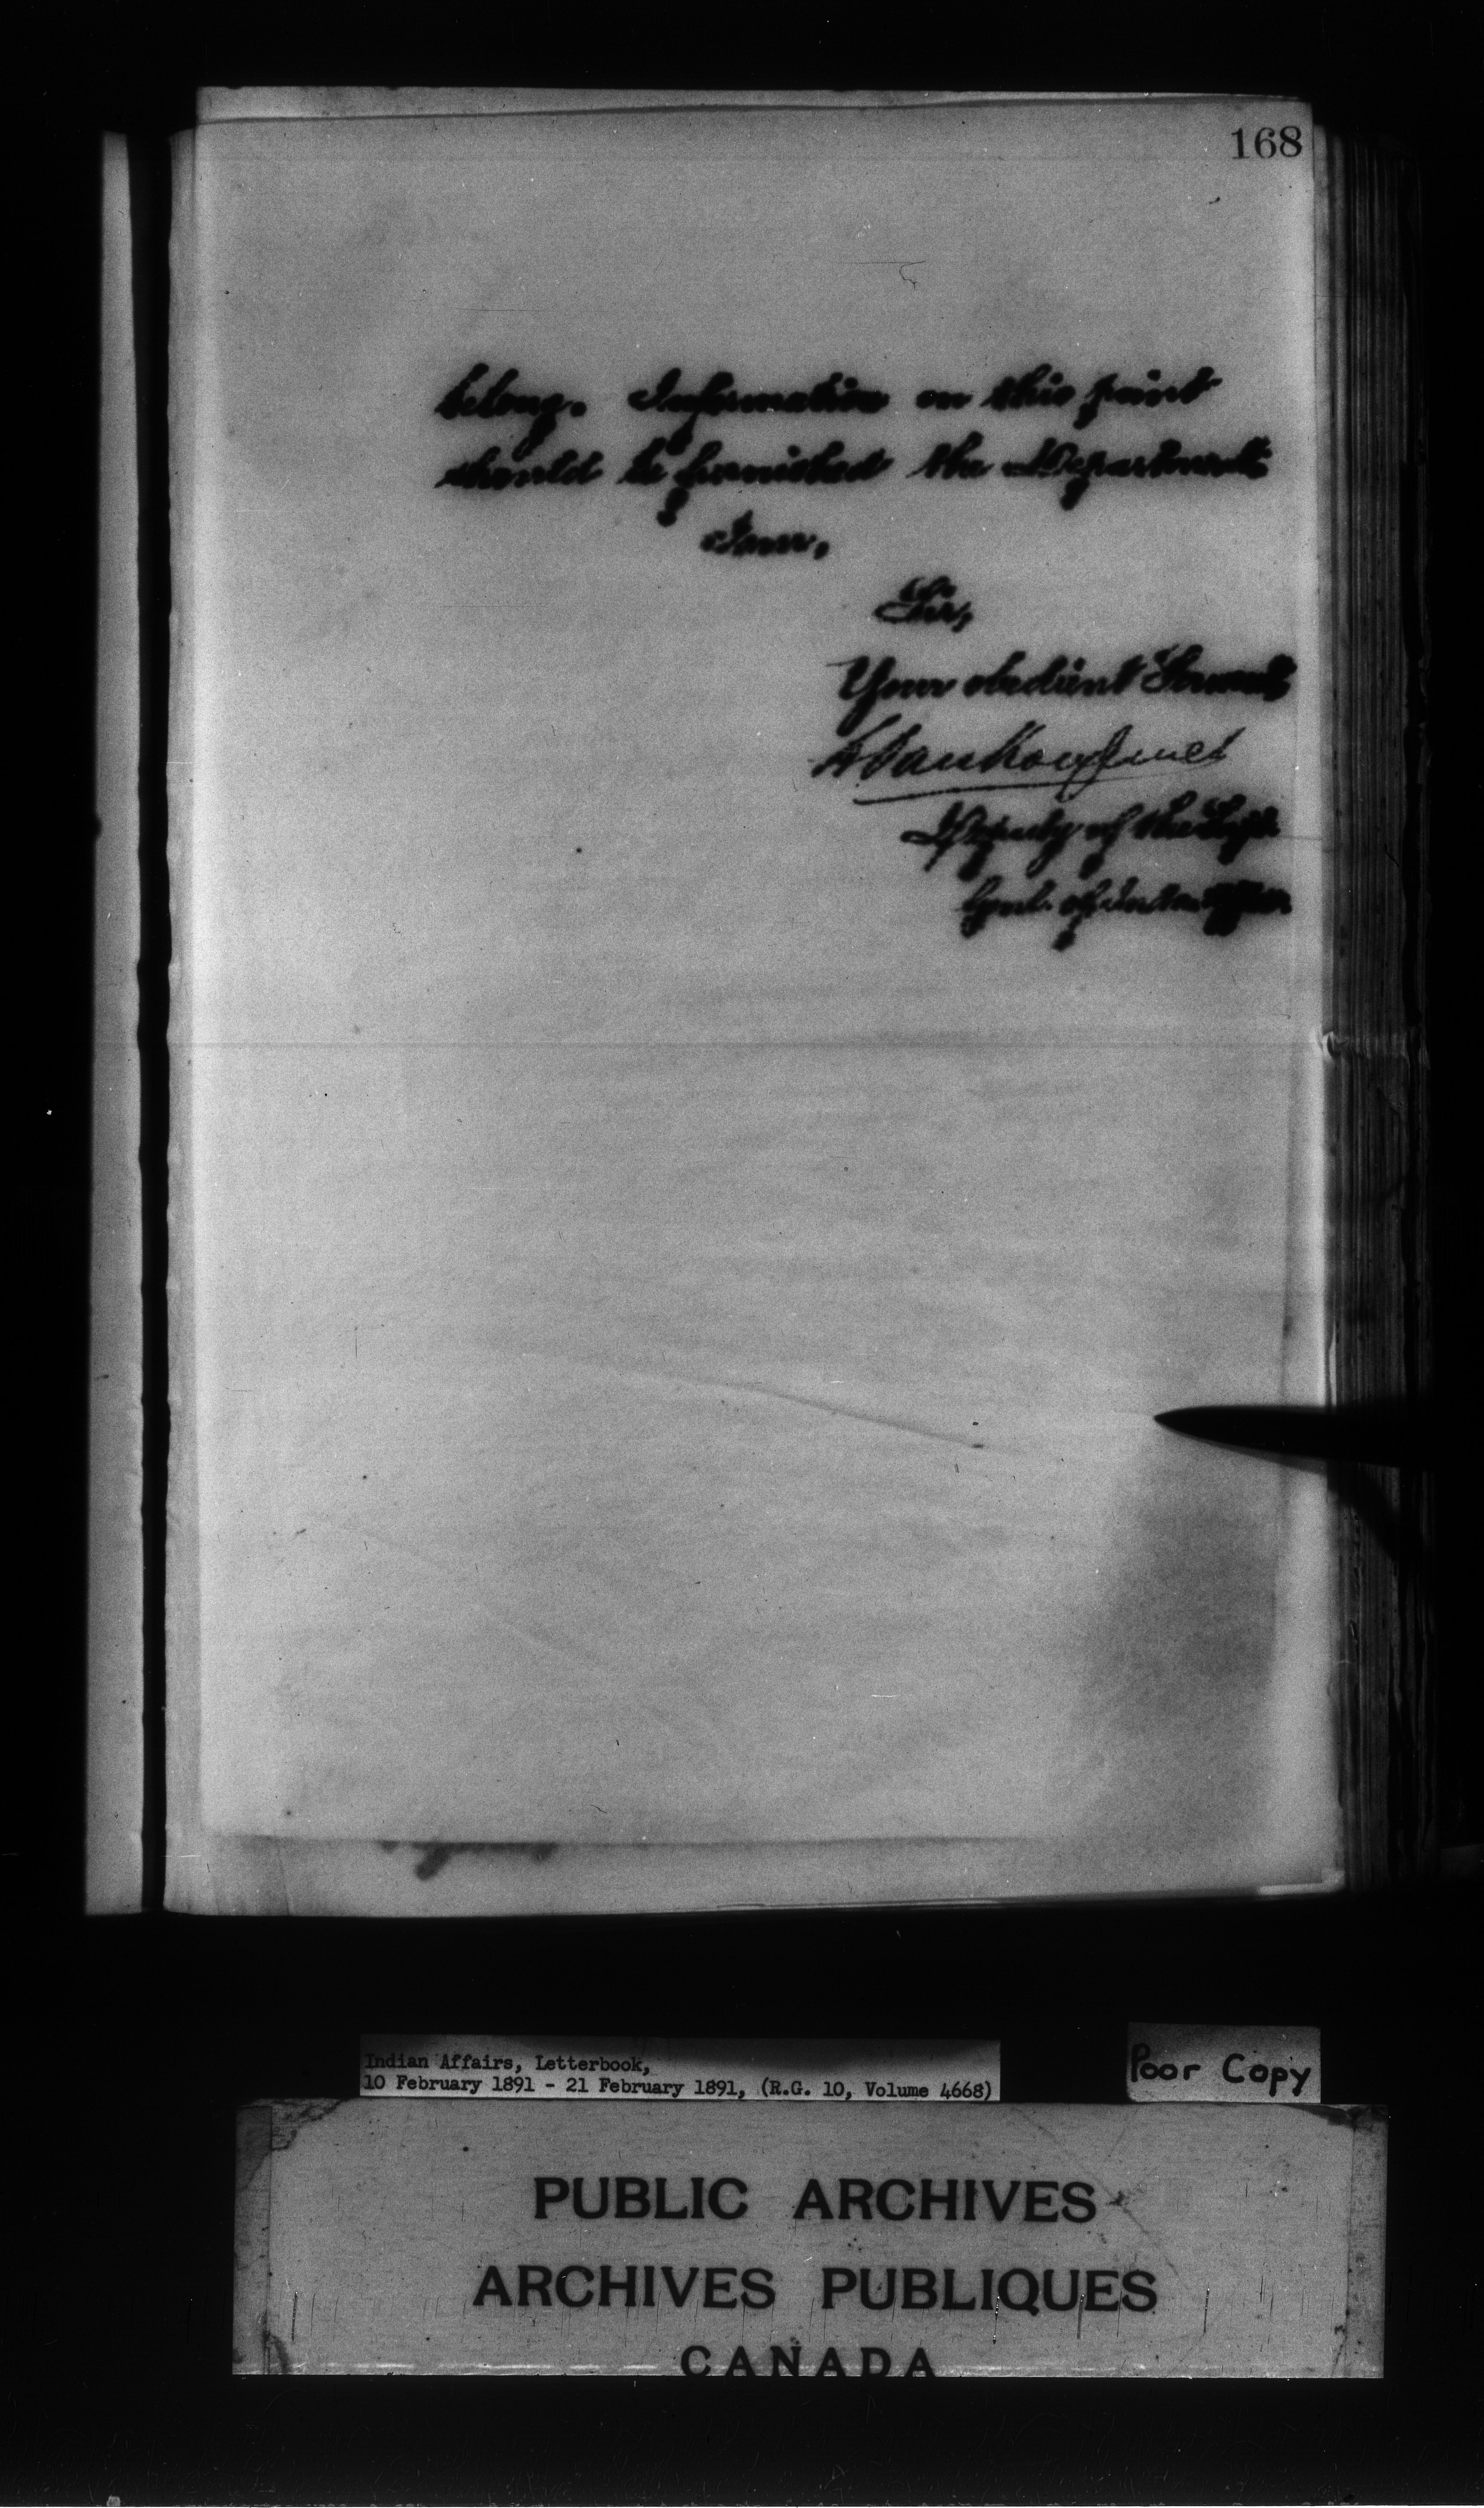 168
belong. Information on this point
should be furnished the Department
I am,
Sir,
Your obedient Servant
L Vankoughnet
Deputy of the Supt
Genl. of Indian Affairs
Indian Affairs, Letterbook,
10 February 1891 - 21 February 1891, (R.G. 10, Volume 4668)
Poor Copy
PUBLIC ARCHIVES
ARCHIVES PUBLIQUES
CANADA